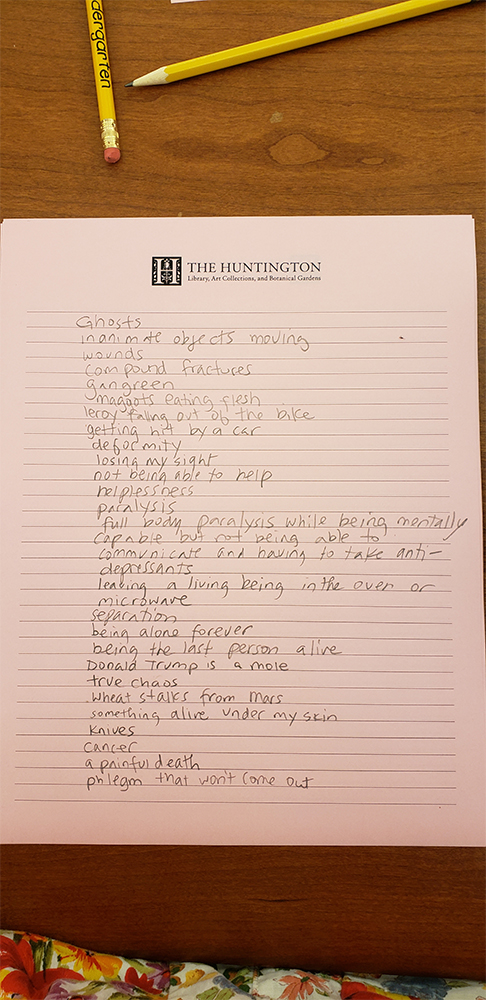 dergarten
THE HUNTINGTON
Library, Art Collections, and Botanical Gardens
Ghosts
inanimate objects moving
wounds
compound fractures
gangreen
maggots eating flesh
leroy falling out of the bike
getting hit by a car
deformity
losing my sight
not being able to help
helplessness
paralysis
full body paralysis while being mentally
capable but not being able to
communicate and having to take anti-
depressants
leaving a living being in the oven or
microwave
separation
being alone forever
being the last person alive
Donald Trump is a mole
true chaos
wheat stalks from Mars
something alive under my skin
knives
cancer
a painful death
phlegm that won't come out